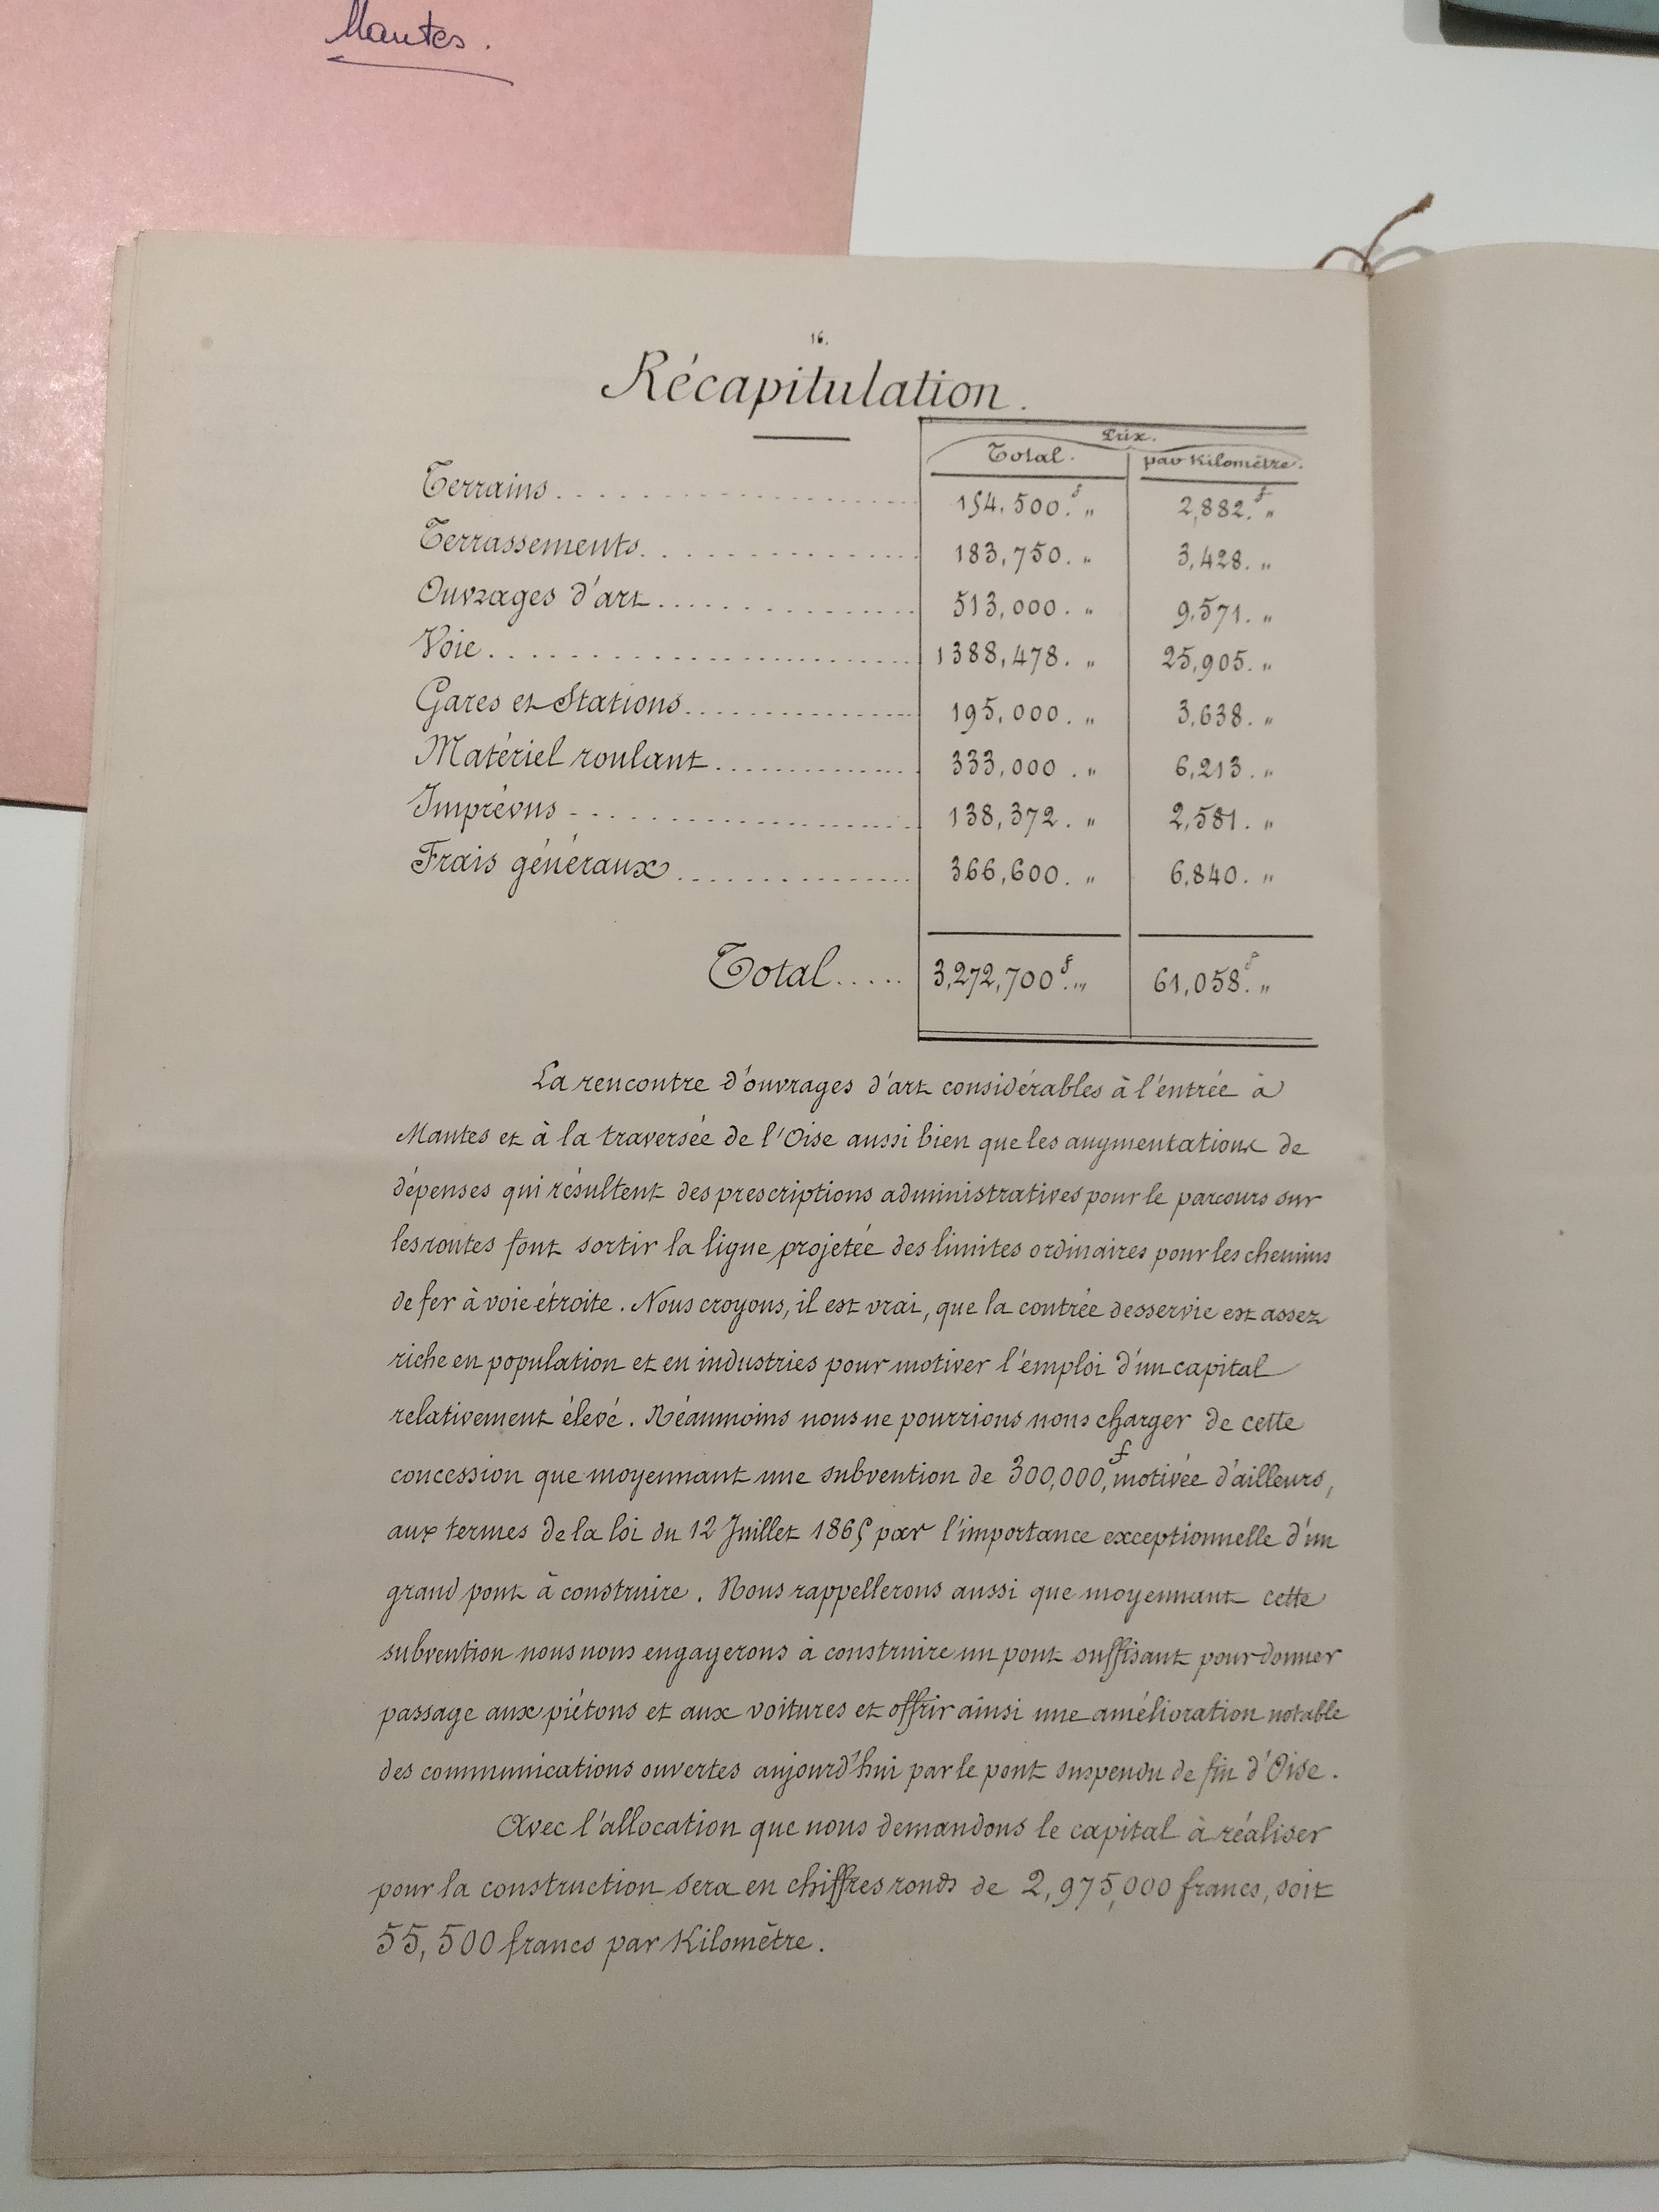 Mantes.
16.
Récapitulation.
Prix.
Total. par Kilomètre.
Terrains . . . . . . . . . . 154.500.f „ 2,882.f „
Terrassements . . . . . . . . . . 183,750. „ 3,428. „
Ouvrages d'art . . . . . . . . . . 513,000. „ 9,571. „
Voie . . . . . . . . . . 1388,478. „ 25,905. „
Gares et Stations . . . . . . . . . . 195,000. „ 3,638. „
Matériel roulant . . . . . . . . . . 333,000. „ 6,213. „
Imprévus . . . . . . . . . . 138,372. „ 2,581. „
Frais généraux . . . . . . . . . . 366,600. „ 6,840. „
Total ..... 3,272,700f. „ 61,058.f „
La rencontre d'ouvrages d'art considérables à l'entrée à
Mantes et à la traversée de l'Oise aussi bien que les augmentations de
dépenses qui résultent des prescriptions administratives pour le parcours sur
les routes font sortir la ligne projetée des limites ordinaires pour les chemins
de fer à voie étroite. Nous croyons, il est vrai, que la contrée desservie est assez
riche en population et en industries pour motiver l'emploi d'un capital
relativement élevé. Néanmoins nous ne pourrions nous charger de cette
concession que moyennant une subvention de 300,000,f motivée d'ailleurs,
aux termes de la loi du 12 Juillet 1865 par l'importance exceptionnelle d'un
grand pont à construire. Nous rappellerons aussi que moyennant cette
subvention nous nous engagerons à construire un pont suffisant pour donner
passage aux piétons et aux voitures et offrir ainsi une amélioration notable
des communications ouvertes aujourd'hui par le pont suspendu de fin d'Oise.
Avec l'allocation que nous demandons le capital à réaliser
pour la construction sera en chiffres ronds de 2,975,000 francs, soit
55,500 francs par Kilomètre.